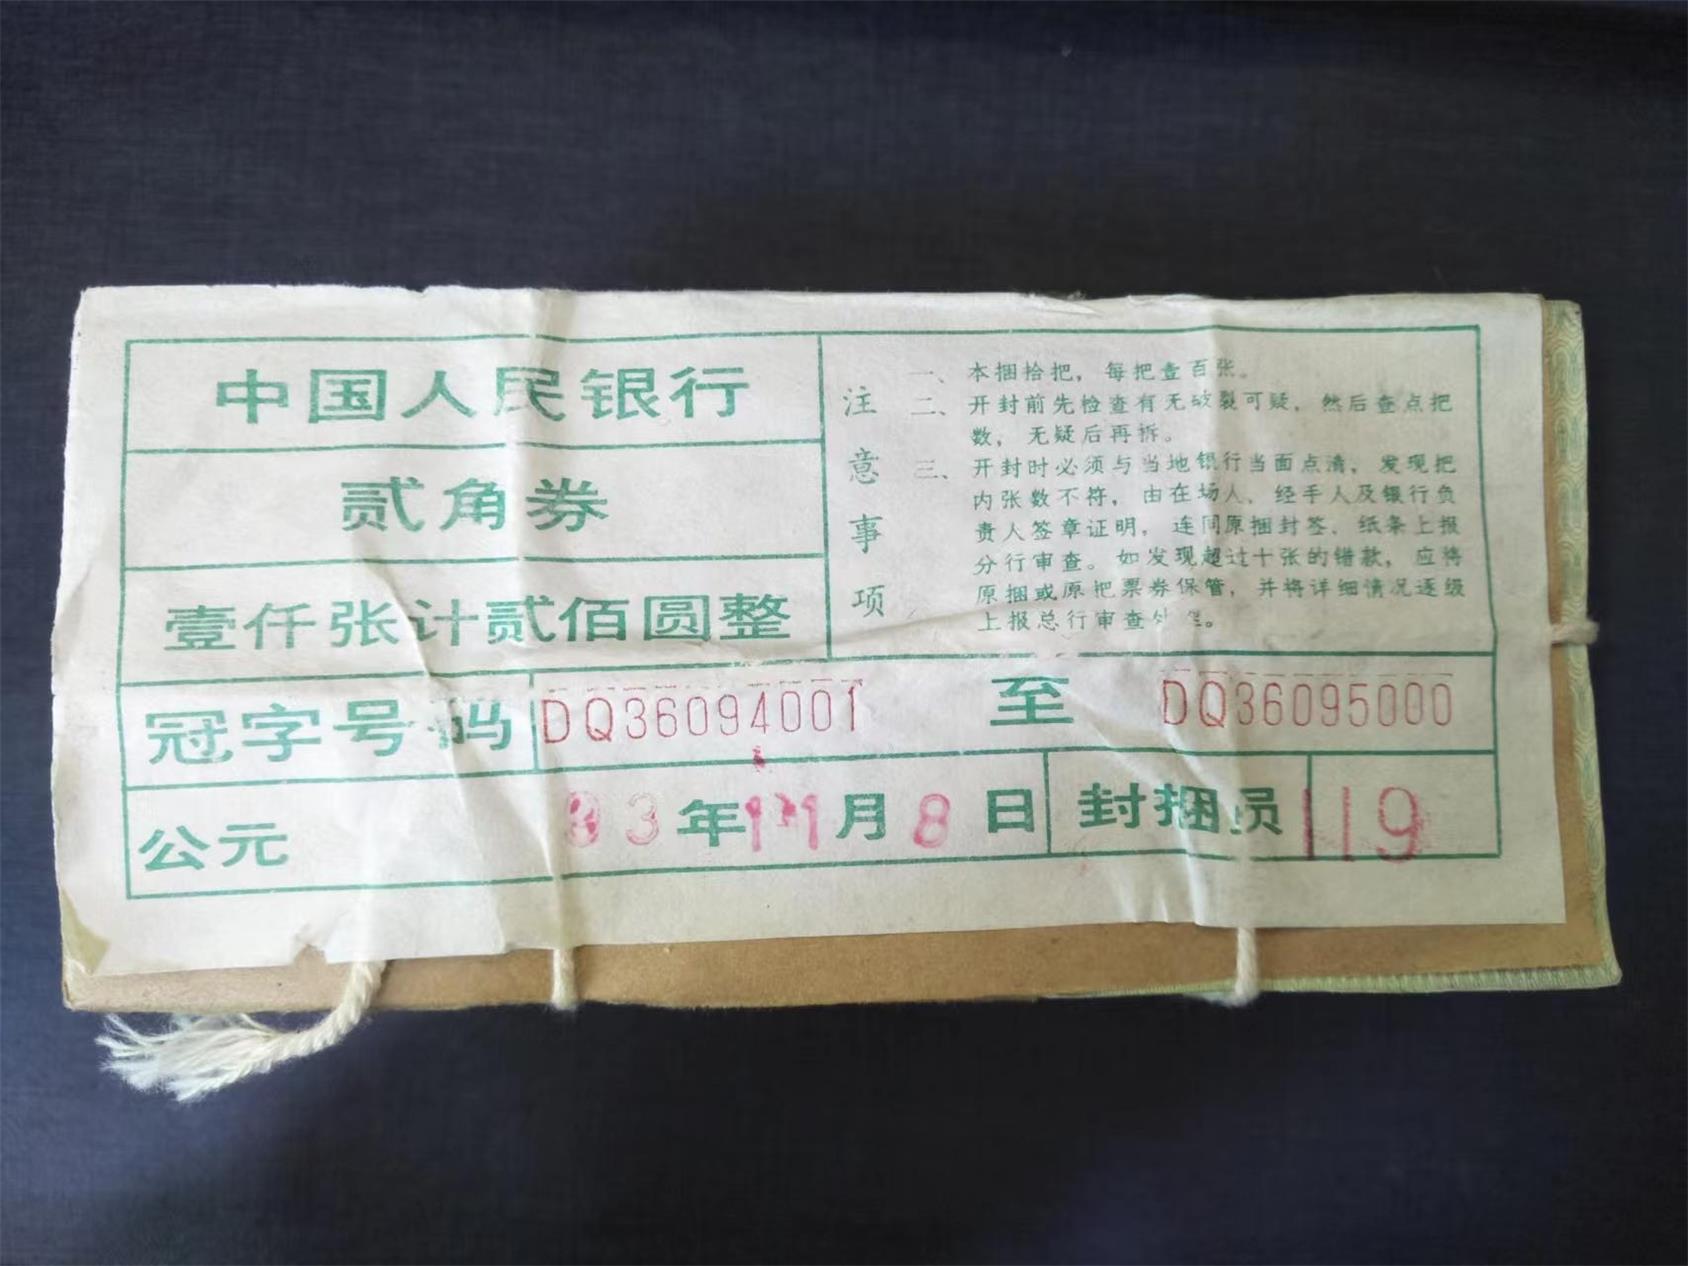 中国人民银行
贰角券
壹仟张计贰佰圆整
注意事项
一、本捆拾把，每把壹百张。
二、开封前先检查有无破裂可疑，然后查点把
数，无疑后再拆。
三、开封时必须与当地银行当面点清，发现把
内张数不符，由在场人、经手人及银行负
责人签章证明，连同原捆封签、纸条上报
分行审查。如发现超过十张的错款，应将
原捆或原把票券保管，并将详细情况逐级
上报总行审查处理。
冠字号码 DQ36094001 至 DQ36095000
公元 93年11月8日 封捆员 119